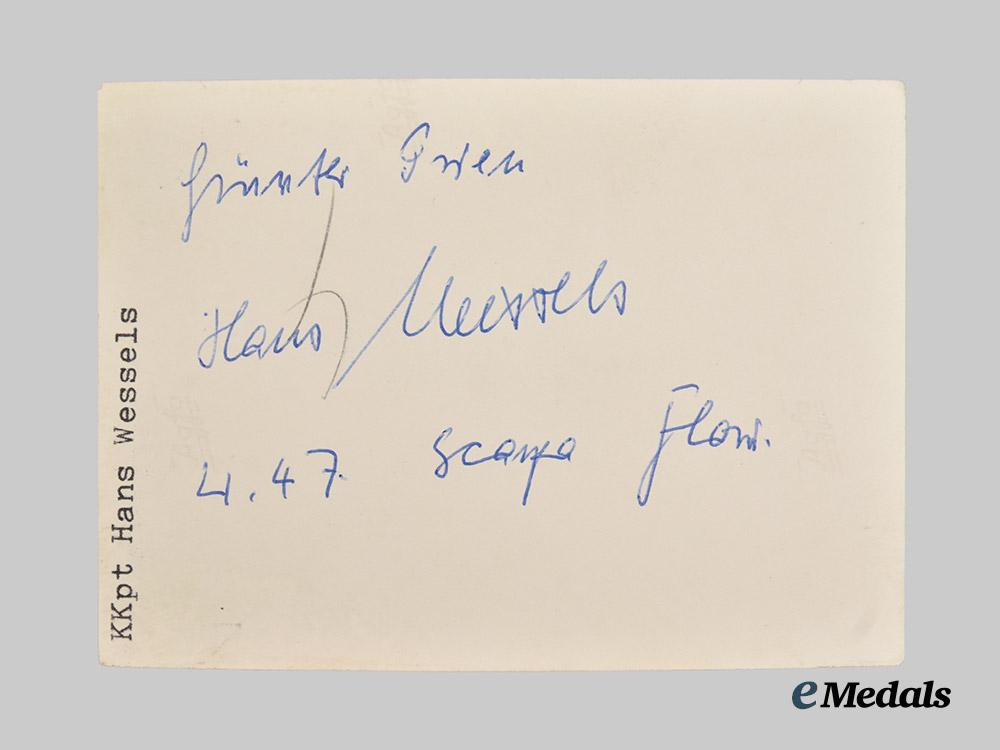 Günter Prien
Hans Wessels
U. 47 Scapa Flow.
KKpt Hans Wessels
eMedals